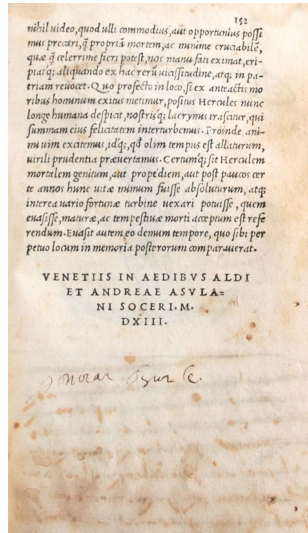 152
nihil video, quod ulli commodius, aut opportunius possi
mus precari, q̃ propriã mortem, ac minime cruciabilẽ,
quæ q̃ celerrime fieri potest, nos manu fati eximat, eri-
piatq; aliquando ex hac rerũ uicissitudine, atq; in pa-
triam reuocet. Quo profecto in loco, si ex anteactis mo
ribus hominum exitus metimur, positus Hercules nunc
longe humana despicit, nostrisq; lacrymis irascitur, qui
summam eius felicitatem interturbemus. Proinde ani-
mi uim excitemus, idq;, qd̃ olim tempus est allaturum,
uirili prudentia præuertamus. Certumq; sit Herculem
mortalem genitum, aut propediem, aut post paucos cer
te annos hunc uitæ mimum fuisse absoluturum, atq;
interea uario fortunæ turbine uexari potuisse, quem
euasisse, maturæ, ac tempestiuæ morti acceptum est refe
rendum. Euasit autem eo demum tempore, quo sibi per
petuo locum in memoria posterorum comparauerat.
VENETIIS IN AEDIBVS ALDI
ET ANDREAE ASVLA-
NI SOCERI. M.
DXIII.